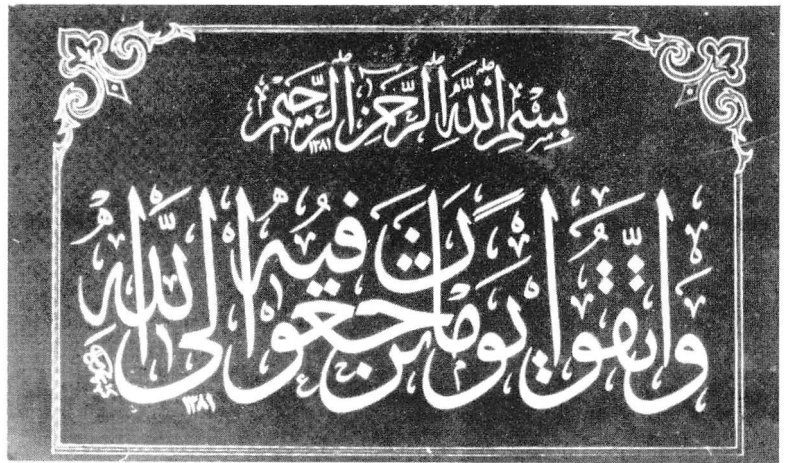 بِسْمِ اللهِ الرَّحْمٰنِ الرَّحِيْمِ
١٣٨١
وَاتَّقُوا يَوْمًا تُرْجَعُونَ فِيهِ إِلَى اللهِ
١٣٨١